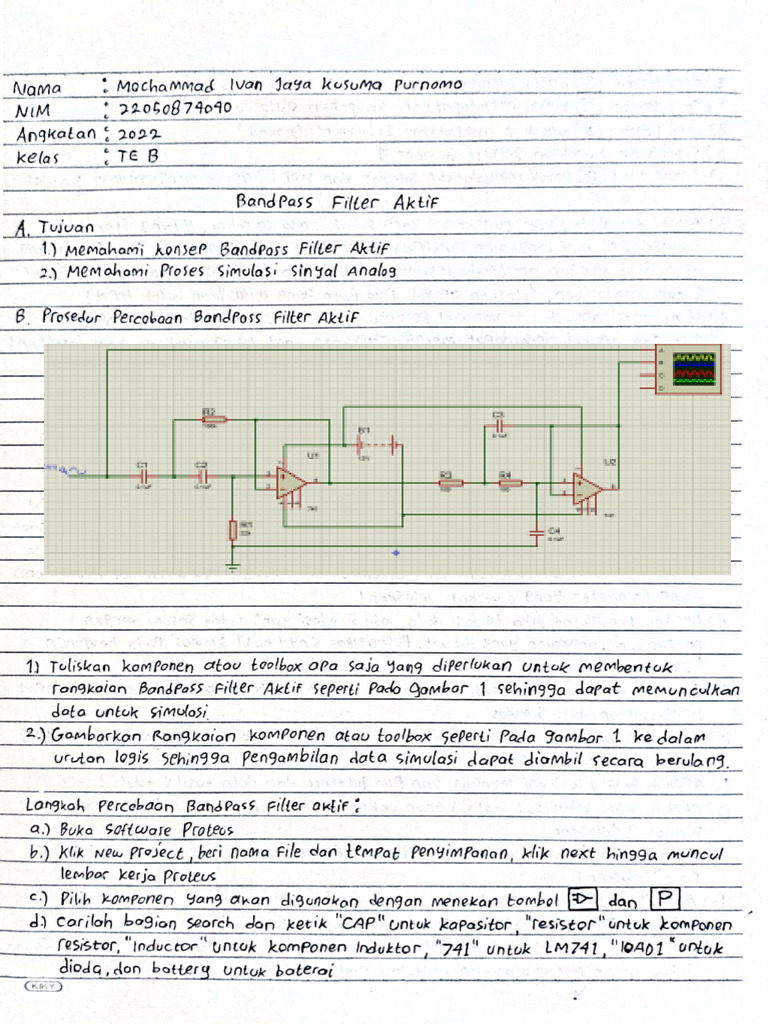 Nama : Mochammad Ivan Jaya Kusuma Purnomo
NIM : 22050874040
Angkatan : 2022
Kelas : TE B
BandPass Filter Aktif
A. Tujuan
1.) Memahami Konsep BandPass Filter Aktif
2.) Memahami Proses Simulasi Sinyal Analog
B. Prosedur Percobaan BandPass Filter Aktif
A
B
C
D
R2
C3
B1
C1
C2
U1
R3
R4
U2
R1
C4
1) Tuliskan komponen atau toolbox apa saja yang diperlukan untuk membentuk
rangkaian BandPass Filter Aktif seperti pada gambar 1 sehingga dapat memunculkan
data untuk simulasi
2.) Gambarkan Rangkaian komponen atau toolbox seperti Pada gambar 1 ke dalam
urutan logis sehingga pengambilan data simulasi dapat diambil secara berulang.
Langkah Percobaan BandPass Filter aktif :
a.) Buka Software Proteus
b.) Klik New Project, beri nama File dan tempat penyimpanan, klik next hingga muncul
lembar kerja Proteus
c.) Pilih komponen yang akan digunakan dengan menekan tombol dan P
d.) Carilah bagian search dan ketik "CAP" untuk kapasitor, "resistor" untuk komponen
resistor, "Inductor" untuk komponen Induktor, "741" untuk LM741, "10A01" untuk
dioda, dan battery untuk baterai
KIKY